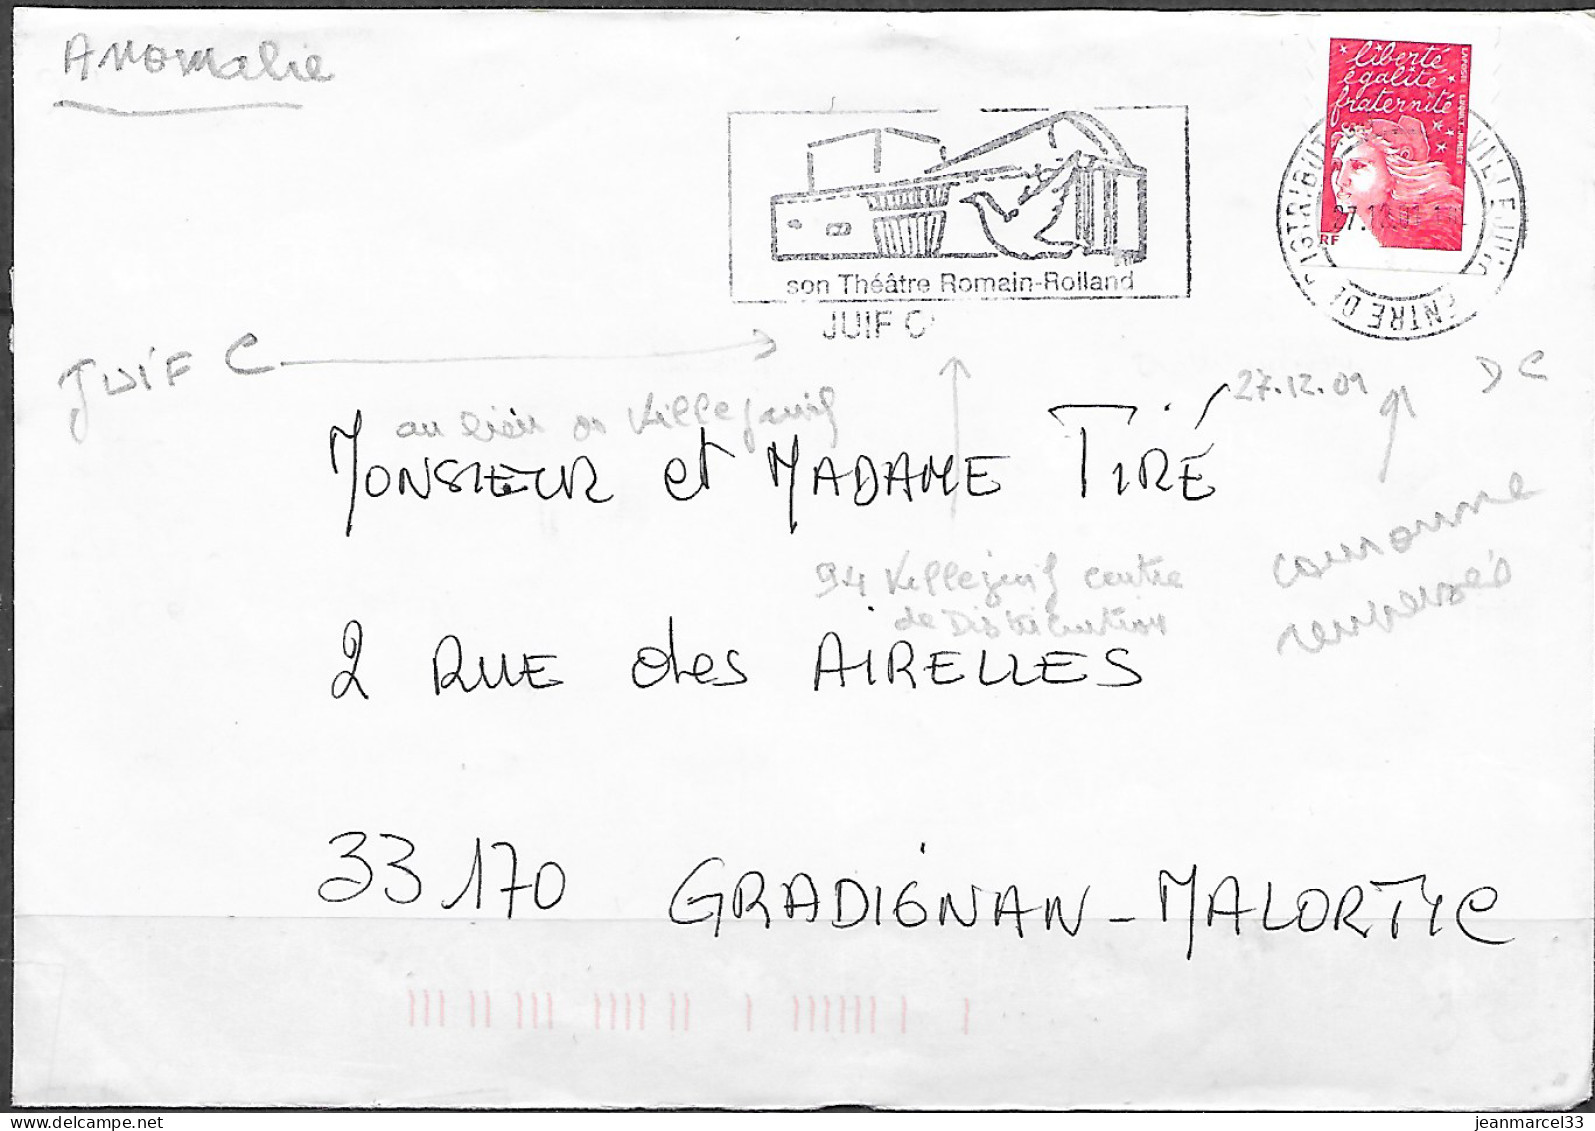 Anomalie
liberté
égalité
fraternité
LA POSTE
LUQUET-JUMELET
RF
VILLEJUIF
CENTRE DE DISTRIBUT
27.12.01
son Théâtre Romain-Rolland
JUIF C
JUIF C
27.12.01
DC
au lieu de Villejuif
MONSIEUR et MADAME TIRÉ
couronne
renversée
94 Villejuif centre
de Distribution
2 RUE des AIRELLES
33.170 GRADIGNAN-MALARTIC
jeanmarcel33